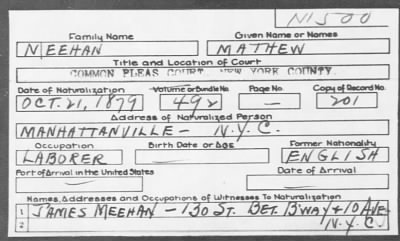 N1500
Family Name Given Name or Names
MEEHAN MATHEW
Title and Location of Court
COMMON PLEAS COURT, NEW YORK COUNTY.
Date of Naturalization Volume or Bundle No. Page No. Copy of Record No.
OCT. 21, 1879 492 — 201
Address of Naturalized Person
MANHATTANVILLE — N.Y.C.
Occupation Birth Date or Age Former Nationality
LABORER ENGLISH
Port of Arrival in the United States Date of Arrival
Names, Addresses and Occupations of Witnesses To Naturalization
1 JAMES MEEHAN — 130 ST. BET. B'WAY & 10 AVE.
2 N.Y.C.